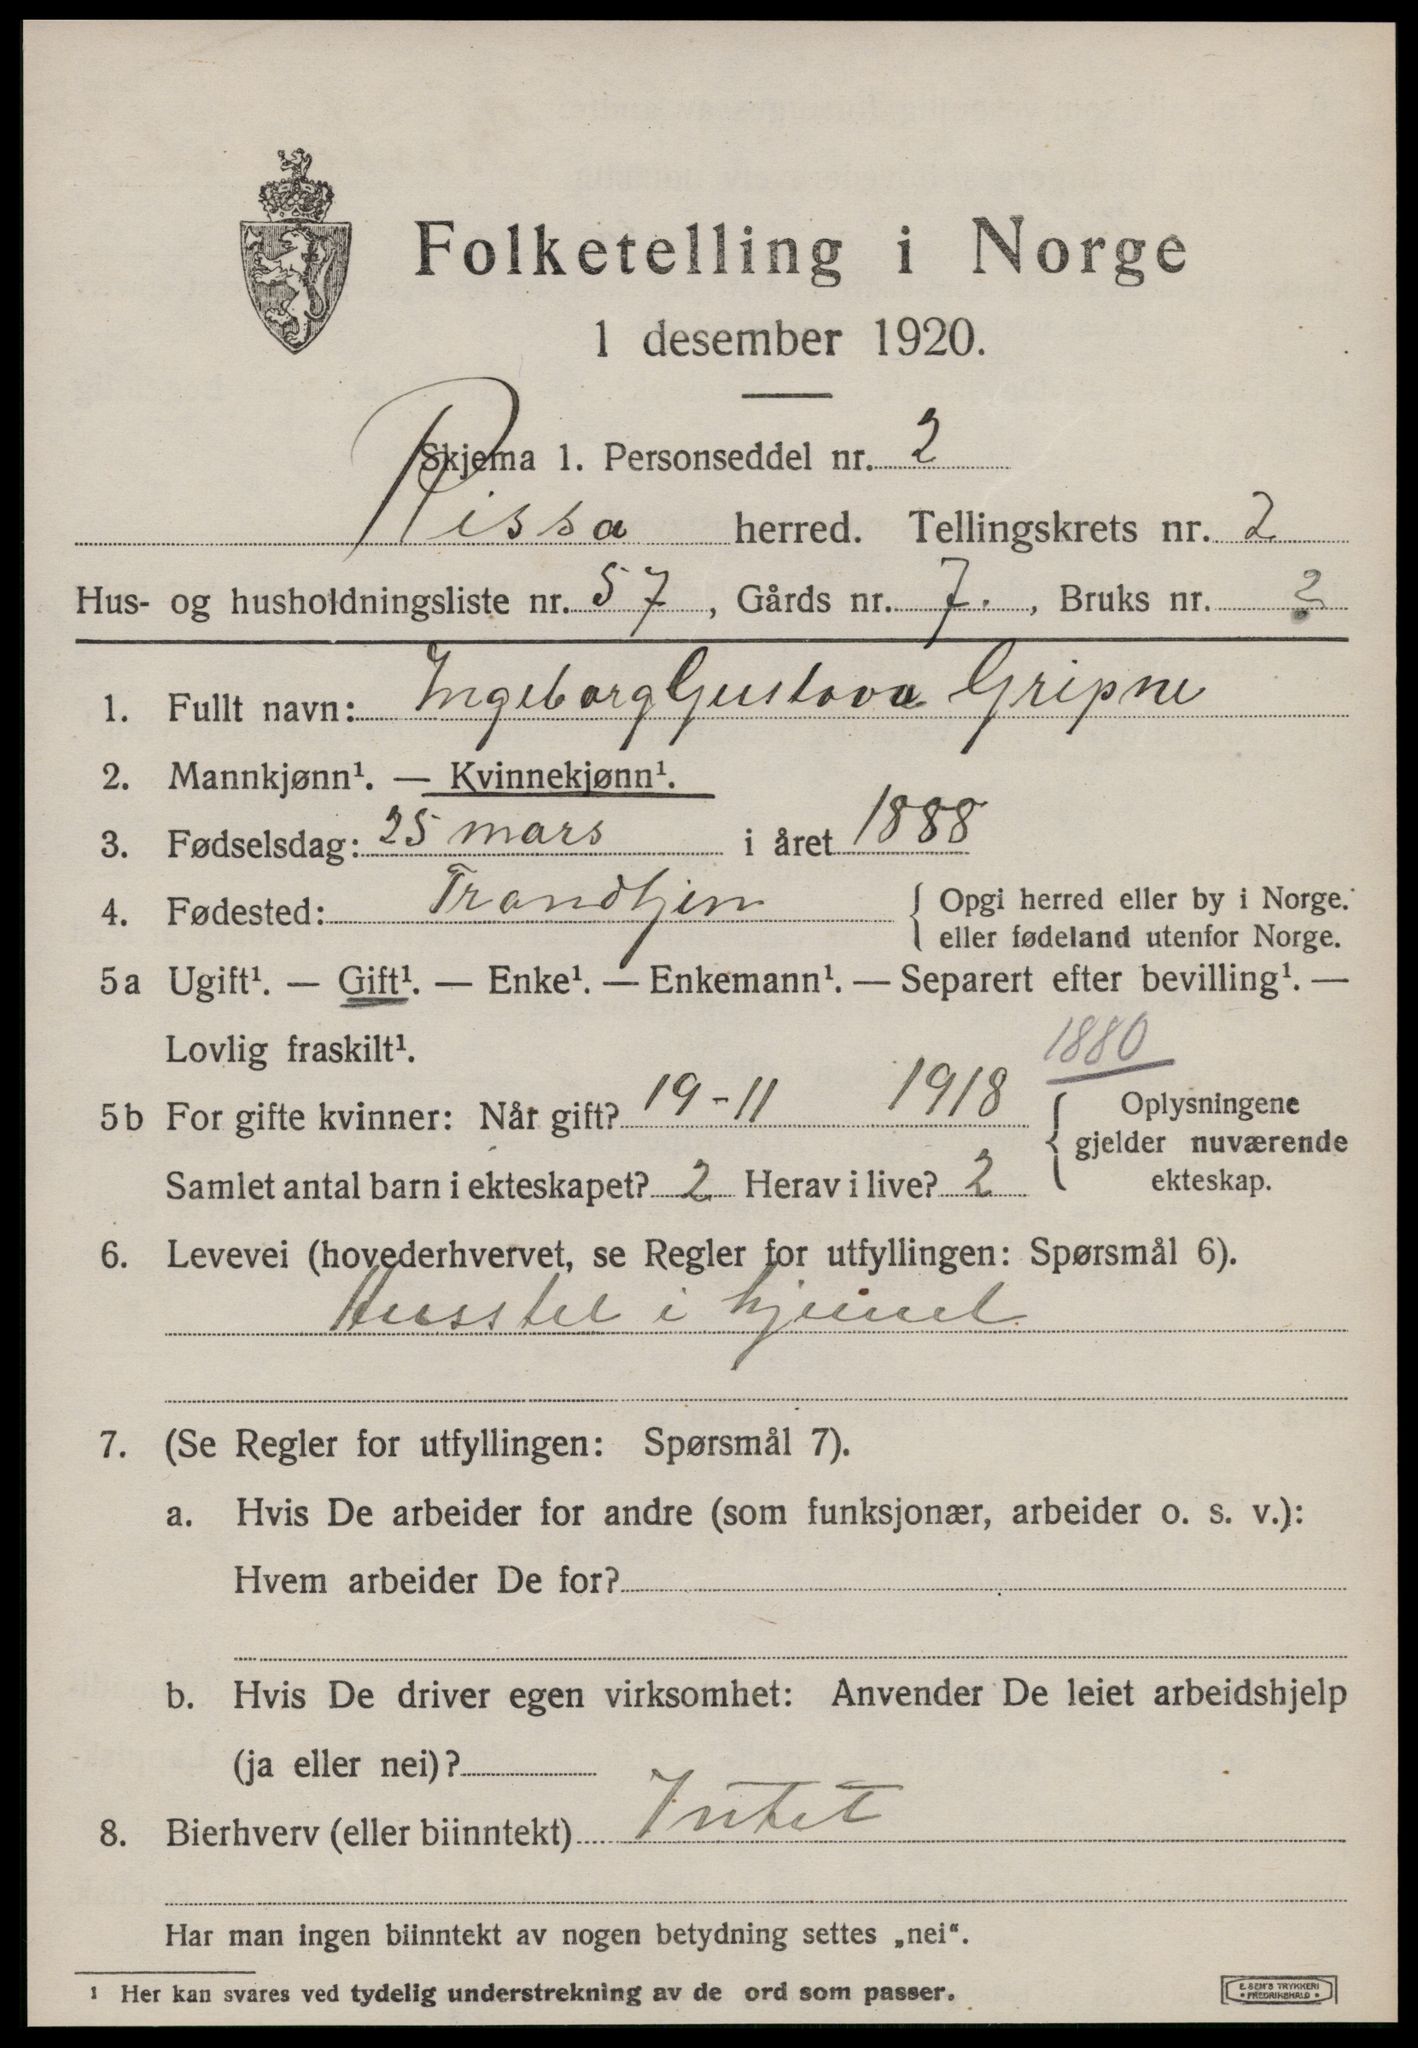 Folketelling i Norge
1 desember 1920.
Skjema 1. Personseddel nr. 2
Rissa herred. Tellingskrets nr. 2
Hus- og husholdningsliste nr. 57, Gårds nr. 7., Bruks nr. 2
1. Fullt navn: Ingeborg Gustava Gripne
2. Mannkjønn¹. — Kvinnekjønn¹.
3. Fødselsdag: 25 mars i året 1888
4. Fødested: Trondhjem { Opgi herred eller by i Norge.
eller fødeland utenfor Norge.
5a Ugift¹. — Gift¹. — Enke¹. — Enkemann¹. — Separert efter bevilling¹. —
Lovlig fraskilt¹.
1880
5b For gifte kvinner: Når gift? 19-11 1918 { Oplysningene
gjelder nuværende
Samlet antal barn i ekteskapet? 2 Herav i live? 2 ekteskap.
6. Levevei (hovederhvervet, se Regler for utfyllingen: Spørsmål 6).
Husstel i hjemmet
7. (Se Regler for utfyllingen: Spørsmål 7).
a. Hvis De arbeider for andre (som funksjonær, arbeider o. s. v.):
Hvem arbeider De for?
b. Hvis De driver egen virksomhet: Anvender De leiet arbeidshjelp
(ja eller nei)?
8. Bierhverv (eller biinntekt) Intet
Har man ingen biinntekt av nogen betydning settes „nei“.
¹ Her kan svares ved tydelig understrekning av de ord som passer.
E. SEM'S TRYKKERI
FREDRIKSHALD